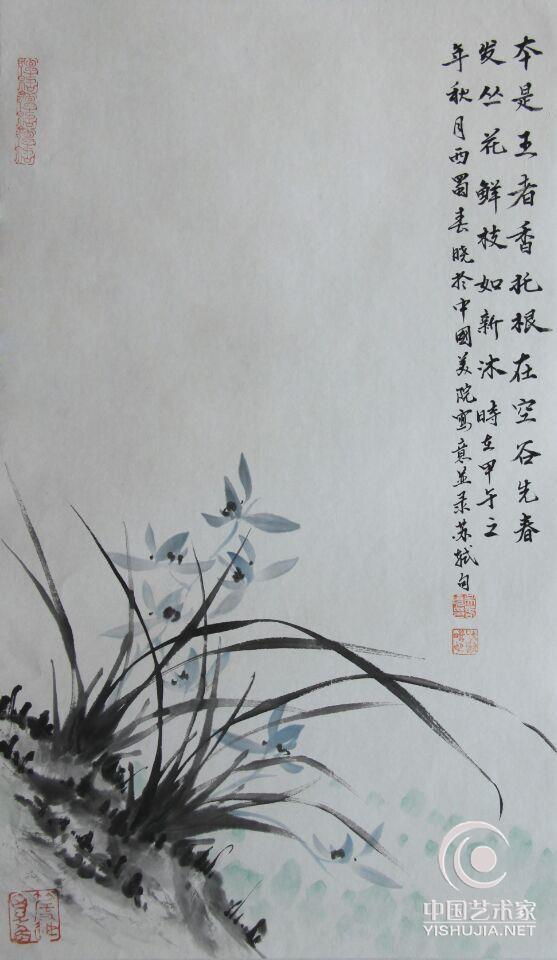 本是王者香托根在空谷先春
发丛花鲜枝如新沐時在甲午之
年秋月西蜀春晓於中國美院寫意並录苏轼句
中国艺术家
YISHUJIA.NET